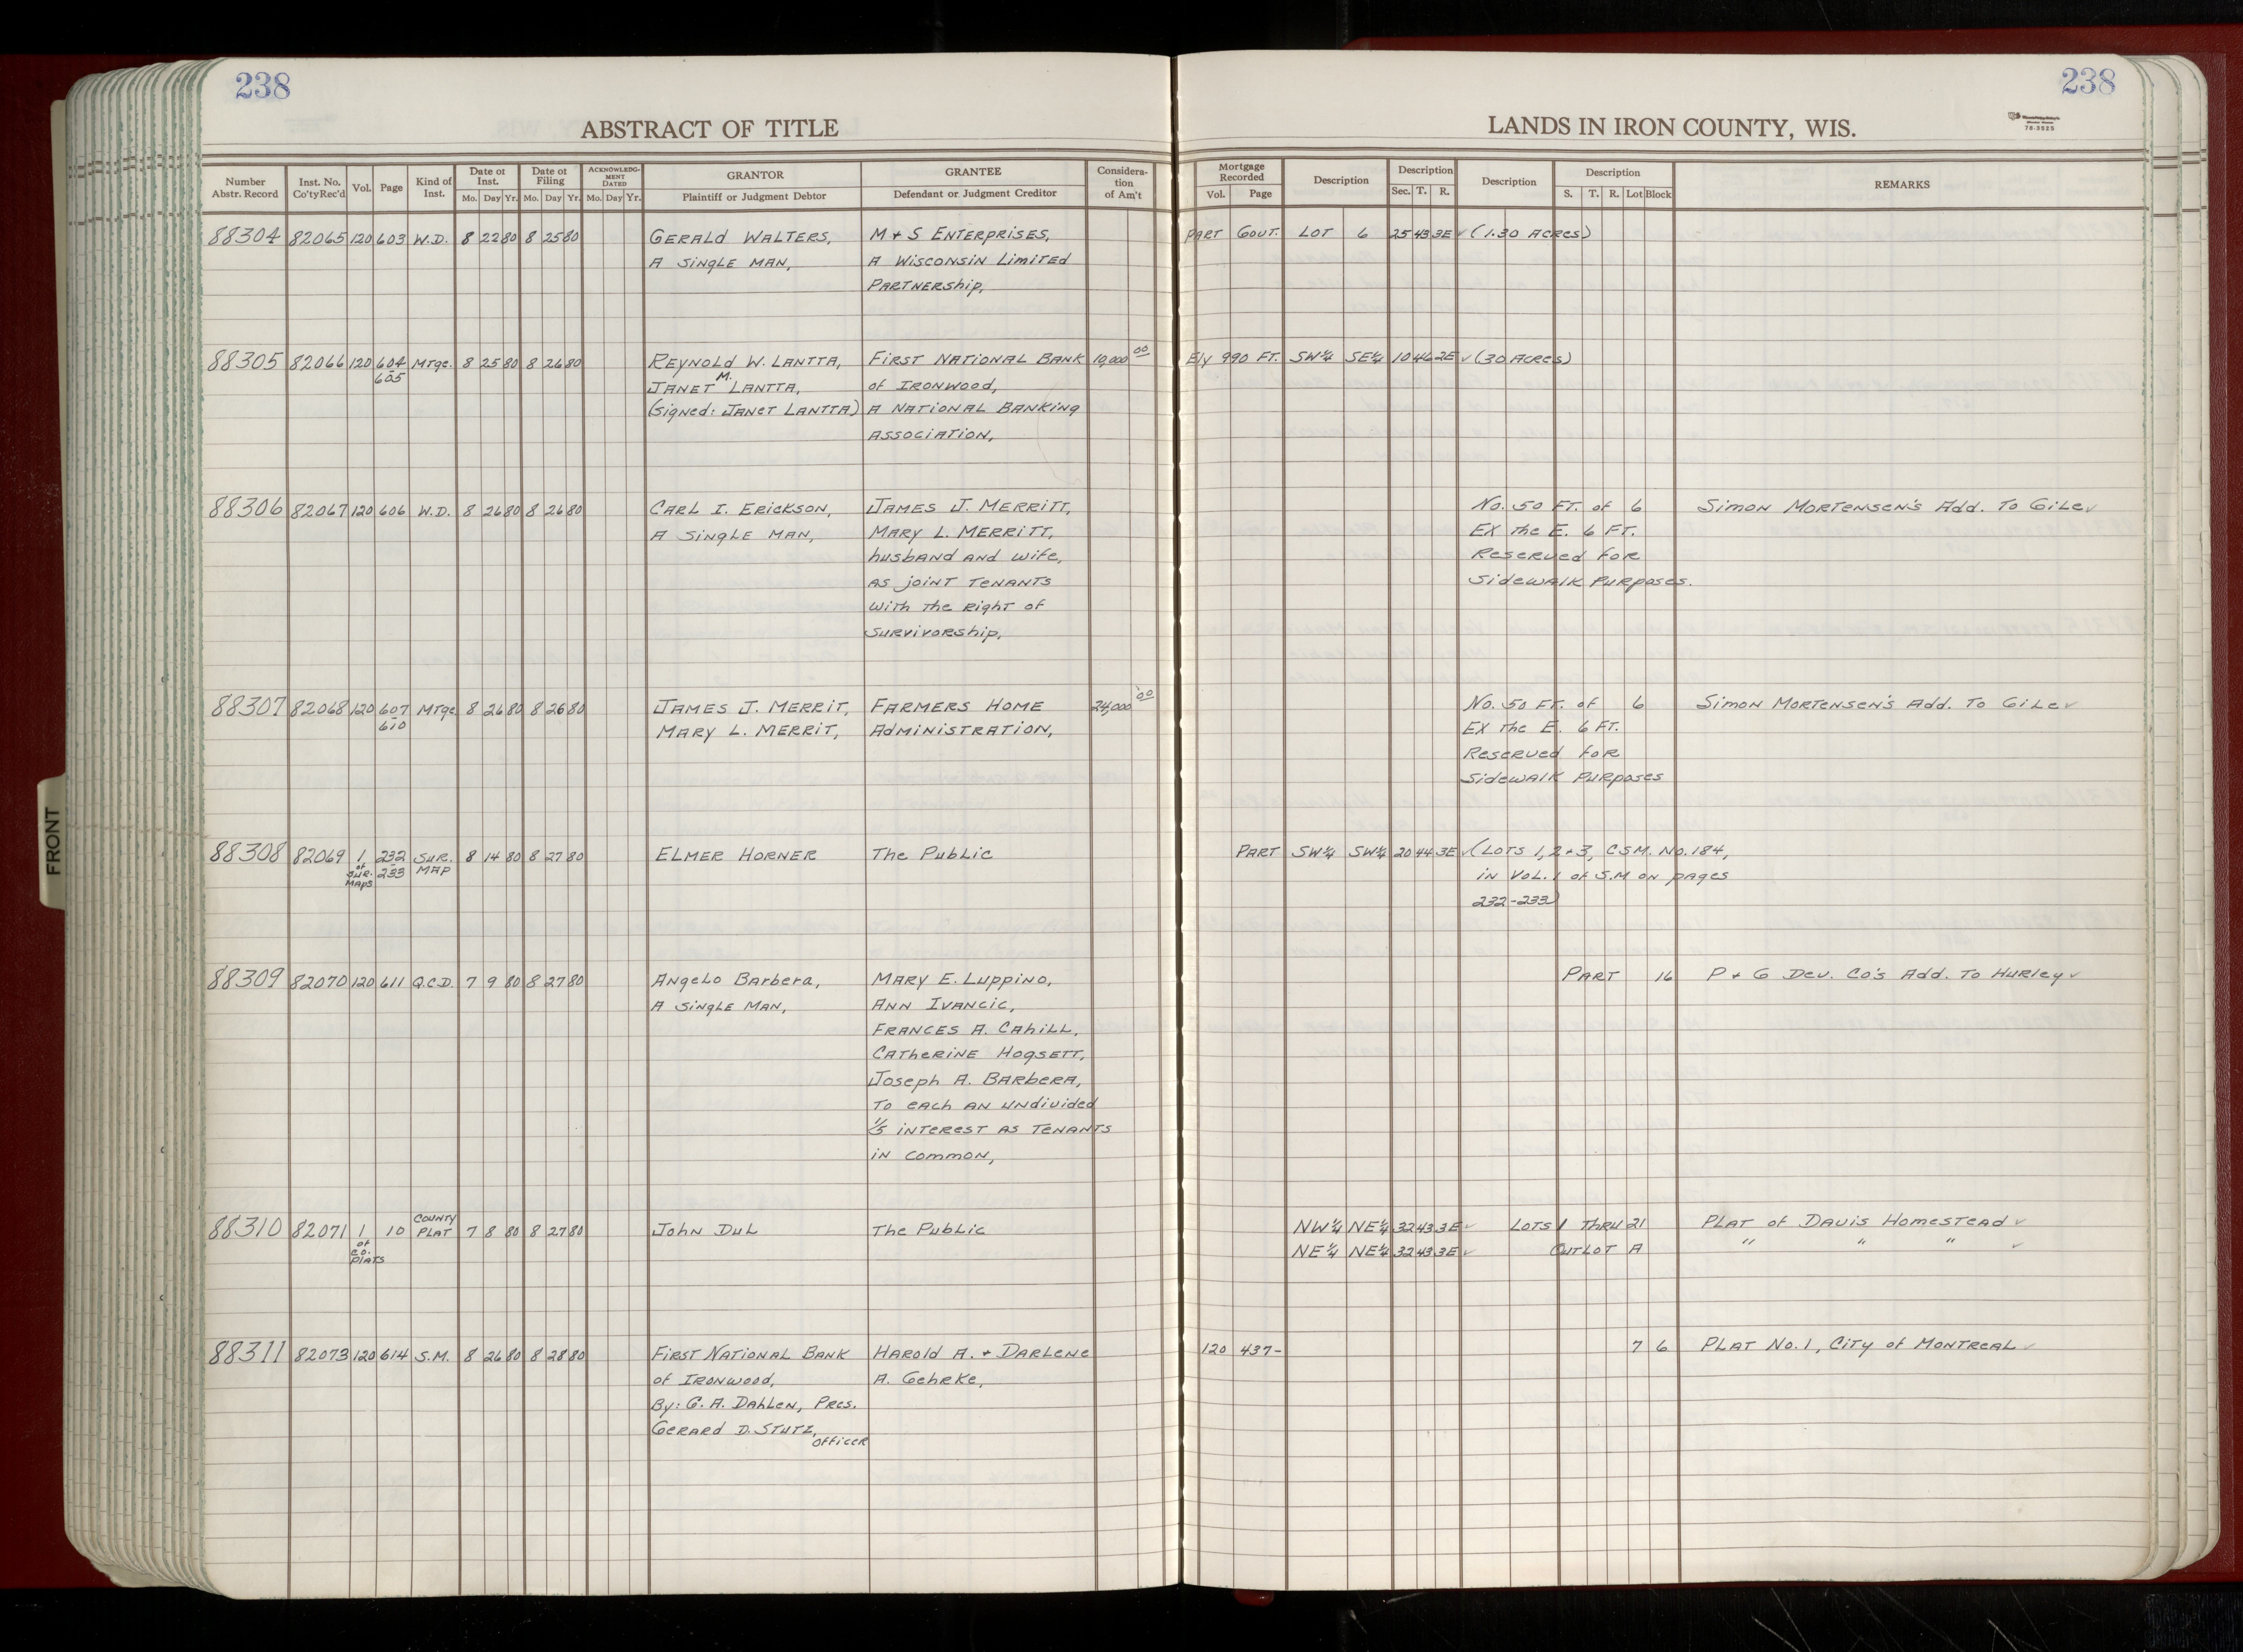 238
238
ABSTRACT OF TITLE
LANDS IN IRON COUNTY, WIS.
78-3525
Number Abstr. Record | Inst. No. Co'ty Rec'd | Vol. | Page | Kind of Inst. | Date of Inst. Mo. Day Yr. | Date of Filing Mo. Day Yr. | ACKNOWLEDGMENT DATED Mo. Day Yr. | GRANTOR Plaintiff or Judgment Debtor | GRANTEE Defendant or Judgment Creditor | Consideration of Am't | Mortgage Recorded Vol. Page | Description | Description Sec. T. R. | Description | Description S. T. R. Lot Block | REMARKS
88304 82065 120 603 W.D. 8 22 80 8 25 80 GERALD WALTERS, M & S ENTERPRISES, PART GOVT. LOT 6 25 43 3E ✓ (1.30 ACRES)
A SINGLE MAN, A WISCONSIN LIMITED
PARTNERSHIP,
88305 82066 120 604 MTge. 8 25 80 8 26 80 REYNOLD W. LANTTA, FIRST NATIONAL BANK 10,000 00 Ely 990 FT. SW¼ SE¼ 10 46 2E ✓ (30 ACRES)
- 605 JANET M. LANTTA, of IRONWOOD,
(Signed: JANET LANTTA) A NATIONAL BANKING
ASSOCIATION,
88306 82067 120 606 W.D. 8 26 80 8 26 80 CARL I. ERICKSON, JAMES J. MERRITT, No. 50 FT. of 6 Simon MORTENSEN'S Add. To GiLe ✓
A SINGLE MAN, MARY L. MERRITT, EX the E. 6 FT.
husband AND wife, Reserved FOR
AS joiNT TENANTS Sidewalk PURPOSES.
with the Right of
SURVIVORship,
88307 82068 120 607 MTge 8 26 80 8 26 80 JAMES J. MERRIT, FARMERS HOME 24,000 00 No. 50 FT. of 6 Simon MORTENSEN'S Add. To GiLe ✓
- 610 MARY L. MERRIT, AdMINISTRATION, EX the E. 6 FT.
Reserved FOR
Sidewalk PURPOSES
88308 82069 1 232 SUR. 8 14 80 8 27 80 ELMER HORNER The PubLic PART SW¼ SW¼ 20 44 3E ✓ (LOTS 1, 2 + 3, CSM. No. 184,
of SUR. MAPS - 233 MAP in VOL. 1 of S.M on pages
232-233)
88309 82070 120 611 Q.C.D. 7 9 80 8 27 80 Angelo Barbera, MARY E. LUPPINO, PART 16 P + G Dev. Co's Add. To HURLEY ✓
A SINGLE MAN, ANN IVANCIC,
FRANCES A. CAHILL,
CATHERINE HOGSETT,
Joseph A. BARBERA,
To each AN UNdivided
1/5 INTEREST AS TENANTS
in common,
88310 82071 1 10 COUNTY PLAT 7 8 80 8 27 80 John DuL The PubLic NW¼ NE¼ 32 43 3E ✓ LOTS 1 THRU 21 PLAT of DAVIS HOMESTEAD ✓
of CO. PLATS NE¼ NE¼ 32 43 3E ✓ OUTLOT A " " " ✓
88311 82073 120 614 S.M. 8 26 80 8 28 80 FIRST NATIONAL BANK HAROLD A. + DARLENE 120 437- 7 6 PLAT No. 1, CITY of MONTREAL ✓
of IRONWOOD, A. GehRKe,
By: G. A. DAHLEN, Pres.
GERARD D. STUTZ, officer
FRONT